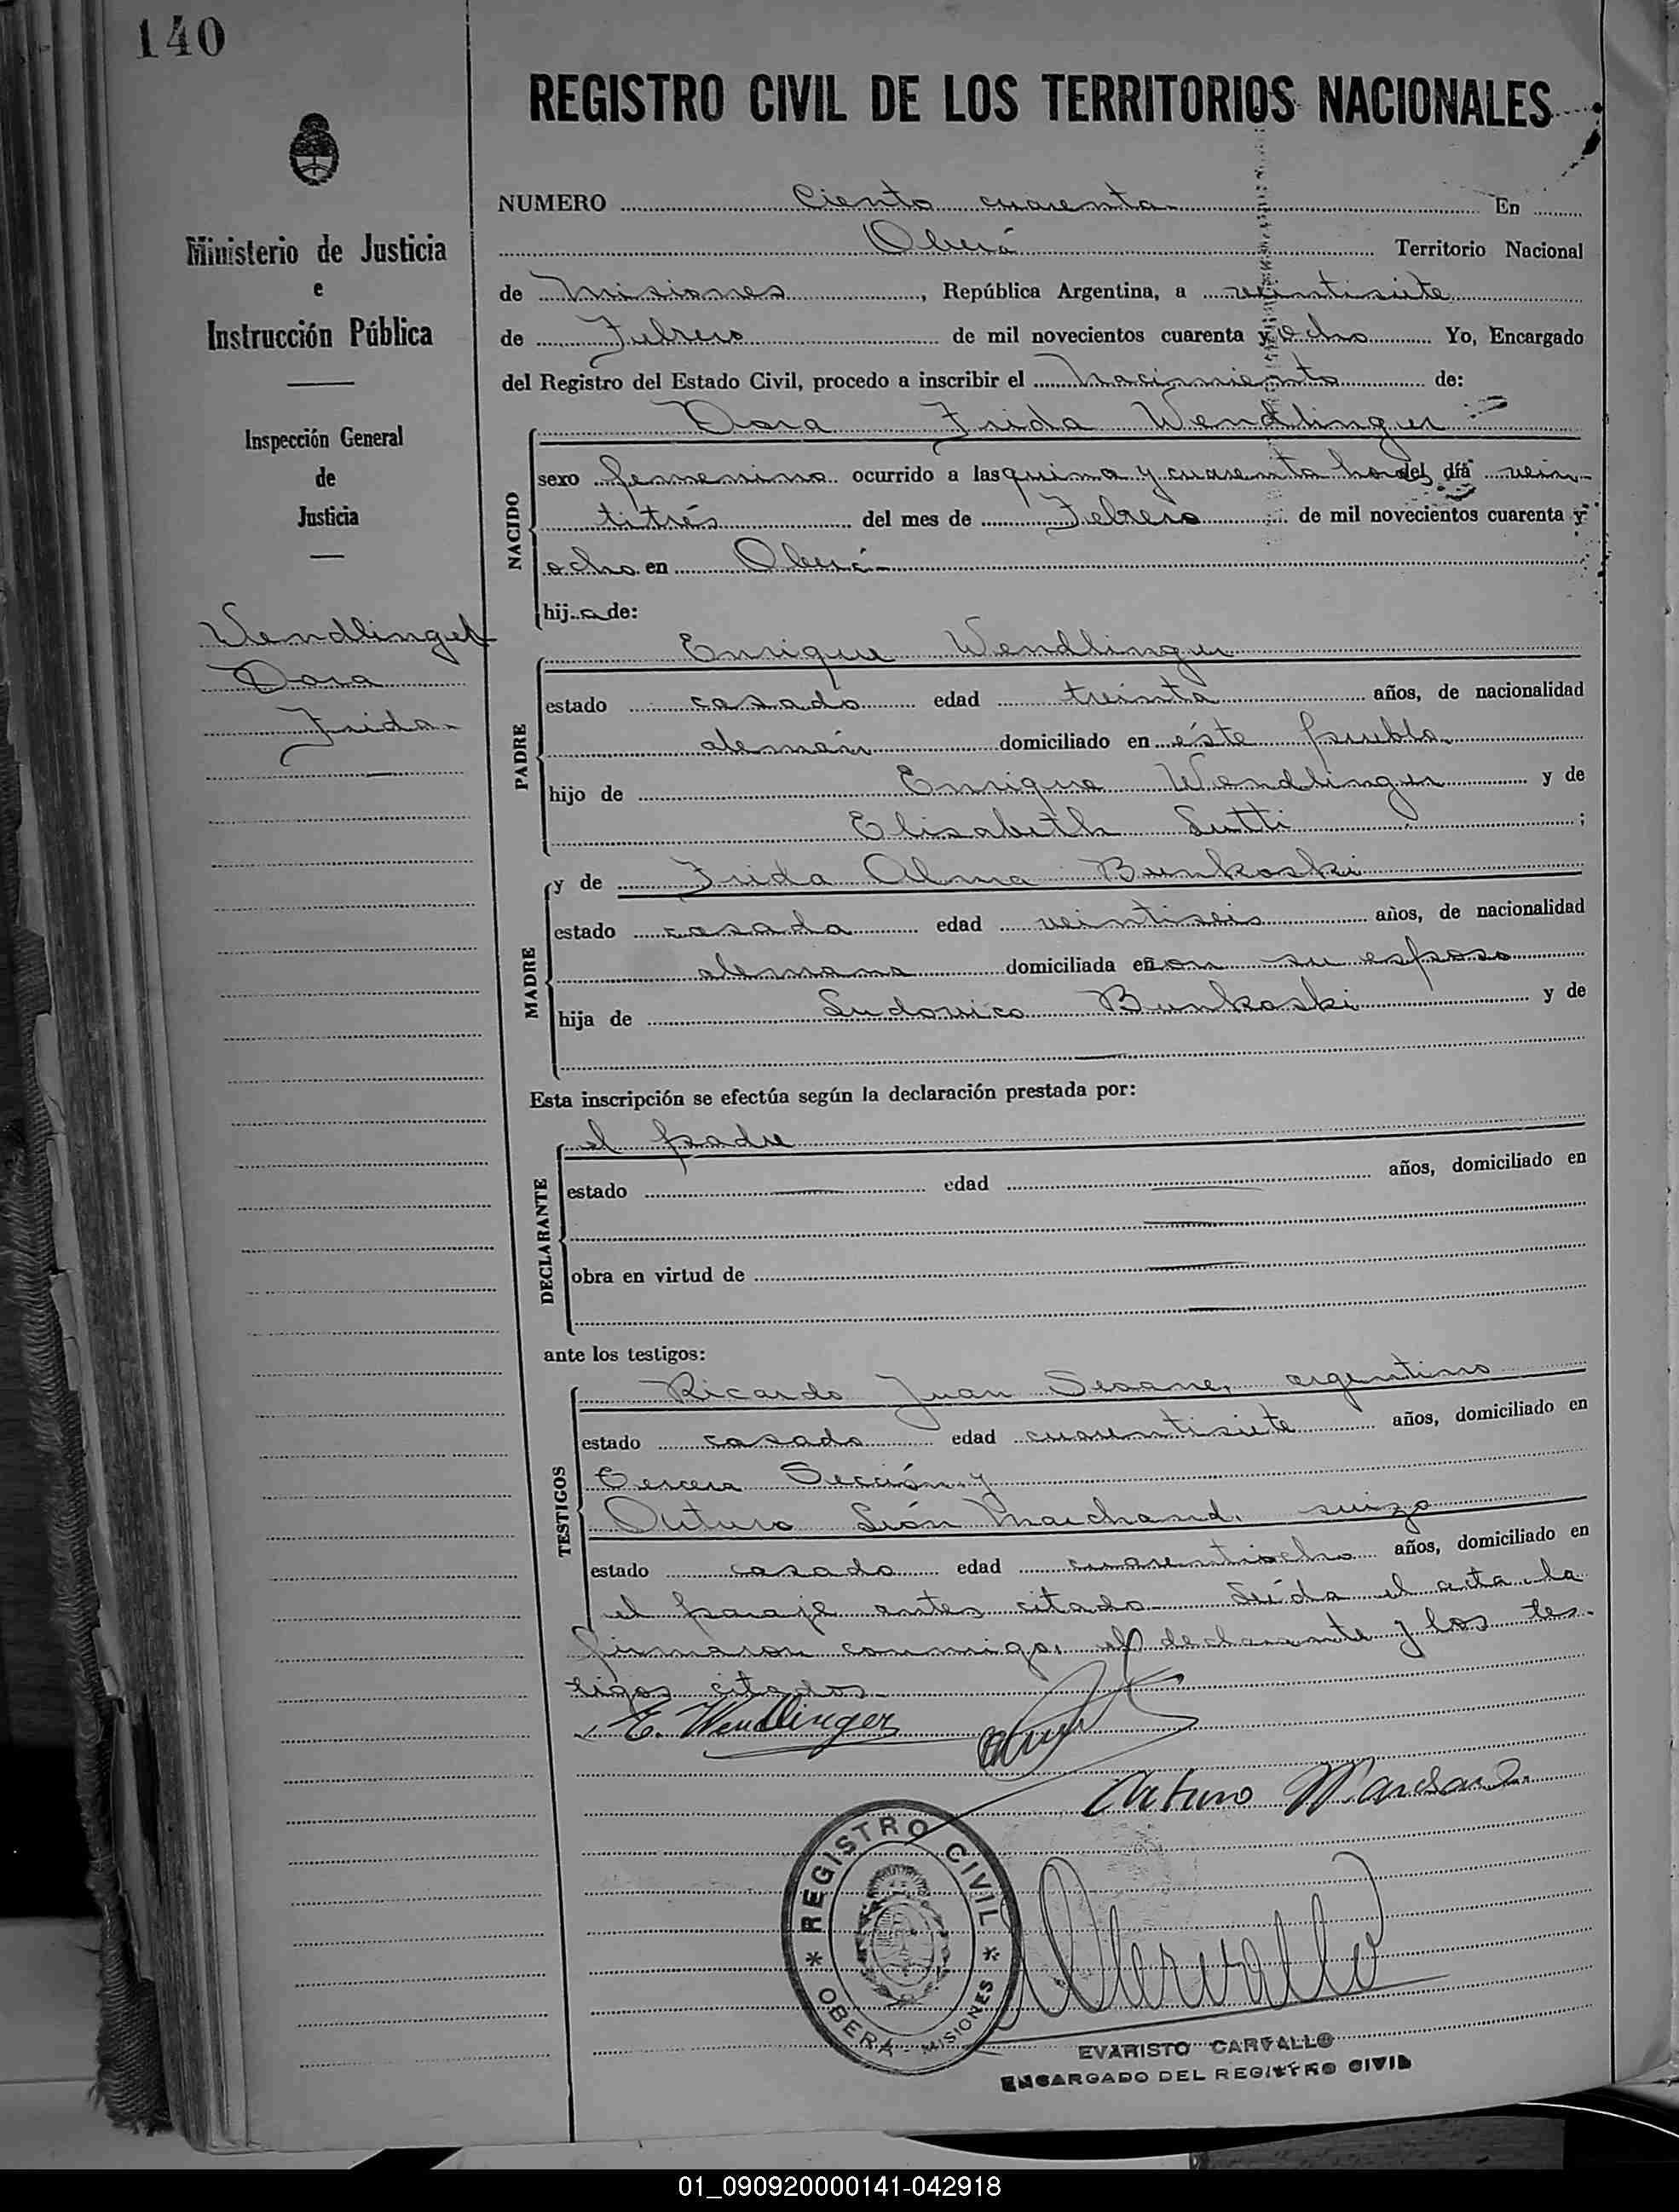 140
REGISTRO CIVIL DE LOS TERRITORIOS NACIONALES
NUMERO Ciento cuarenta En
Oberá Territorio Nacional
de Misiones, República Argentina, a veintisiete
de Febrero de mil novecientos cuarenta y ocho Yo, Encargado
del Registro del Estado Civil, procedo a inscribir el nacimiento de:
Dora Frida Wendlinger
sexo femenino ocurrido a las quince y cuarenta horas del día vein-
titrés del mes de Febrero de mil novecientos cuarenta y
ocho en Oberá
hija de:
NACIDO
Enrique Wendlinger
estado casado edad treinta años, de nacionalidad
alemán domiciliado en éste pueblo
hijo de Enrique Wendlinger y de
Elisabeth Lutti;
PADRE
y de Frida Alma Bunkoski
estado casada edad veintiseis años, de nacionalidad
alemana domiciliada en con su esposo
hija de Ludovico Bunkoski y de
MADRE
Esta inscripción se efectúa según la declaración prestada por:
el padre
estado edad años, domiciliado en
obra en virtud de
DECLARANTE
ante los testigos:
Ricardo Juan Seoane, argentino
estado casado edad cuarentisiete años, domiciliado en
Tercera Sección y
Arturo León Marchand, suizo
estado casado edad cuarentiocho años, domiciliado en
el paraje antes citado. Leída el acta la
firmaron conmigo, el declarante y los tes-
tigos citados
TESTIGOS
E. Wendlinger
Arturo Marchand
REGISTRO CIVIL
OBERÁ - MISIONES
EVARISTO CARVALLO
ENCARGADO DEL REGISTRO CIVIL
Ministerio de Justicia
e
Instrucción Pública
Inspección General
de
Justicia
Wendlinger
Dora
Frida
01_090920000141-042918